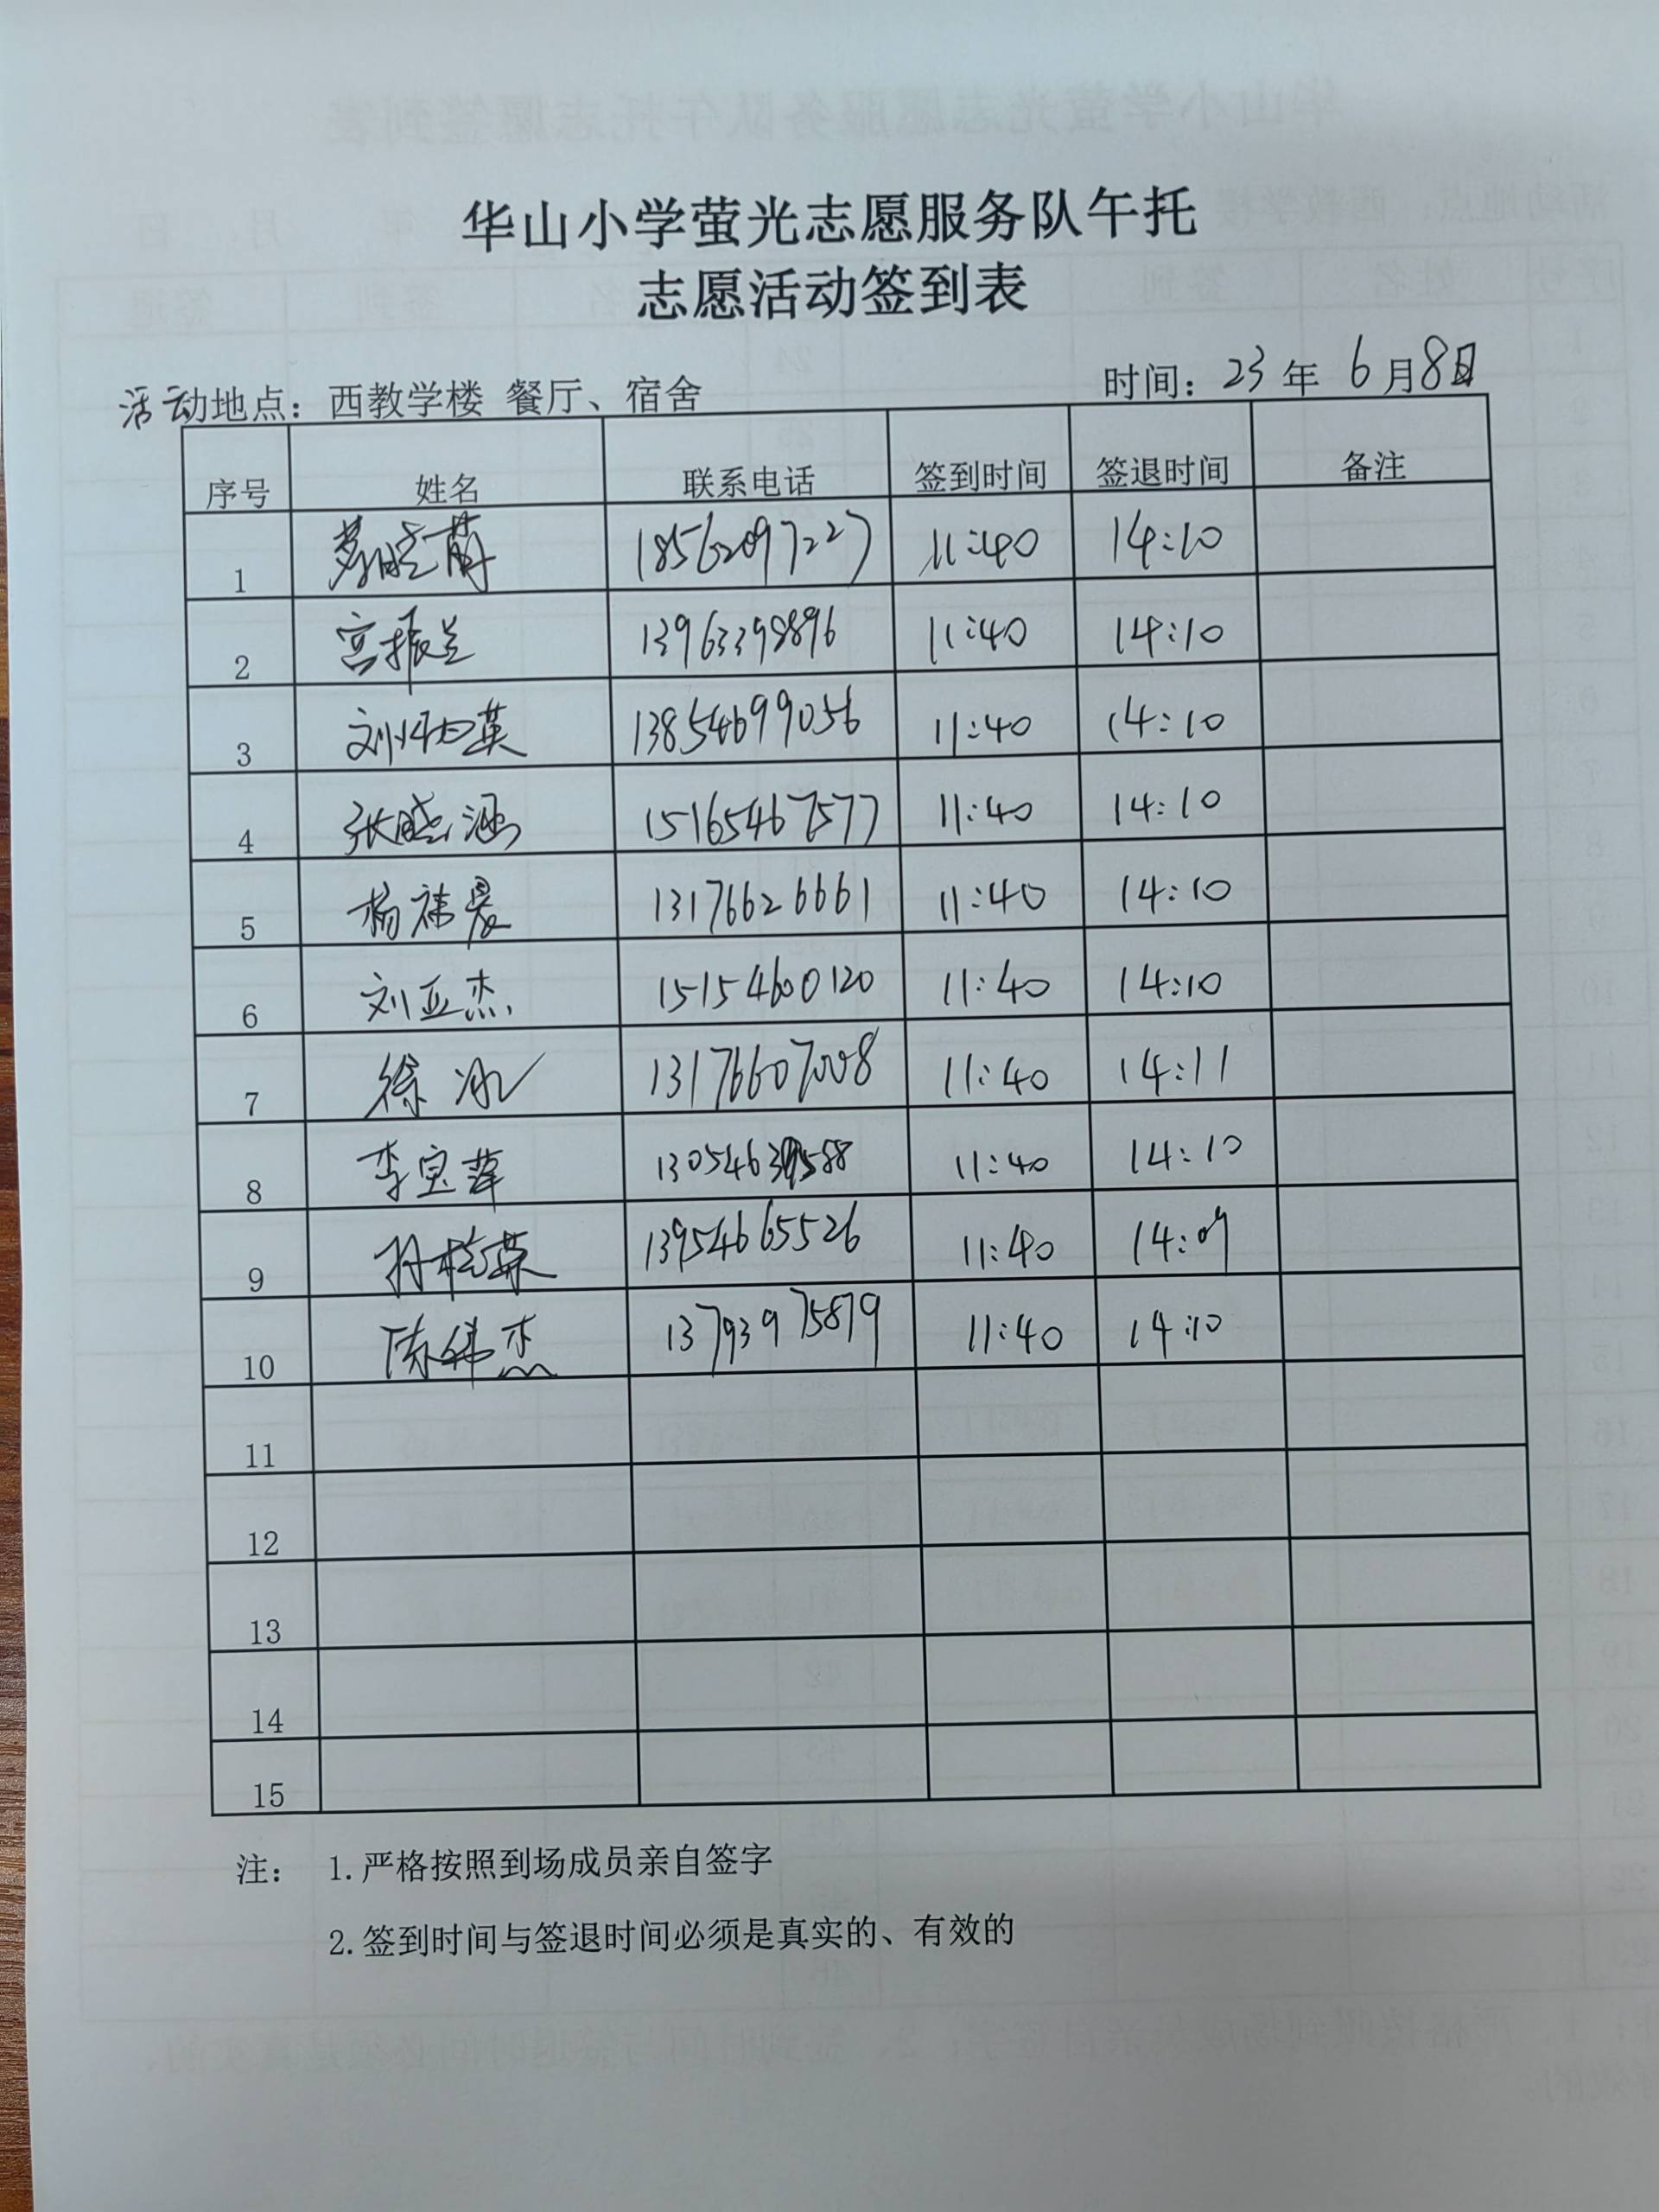 华山小学萤光志愿服务队午托
志愿活动签到表
活动地点：西教学楼 餐厅、宿舍 时间：23年 6月8日
序号 姓名 联系电话 签到时间 签退时间 备注
1 晓蔚 18562097227 11:40 14:10
2 宫振兰 13963398896 11:40 14:10
3 刘炳英 13854699056 11:40 14:10
4 张晓涵 15165467577 11:40 14:10
5 杨祎晨 13176626661 11:40 14:10
6 刘亚杰 15154600120 11:40 14:10
7 徐冰 13176607008 11:40 14:11
8 李宝萍 11:40 14:10
9 孙桂荣 13954665526 11:40 14:09
10 陈伟杰 13793975879 11:40 14:10
11
12
13
14
15
注： 1.严格按照到场成员亲自签字
2.签到时间与签退时间必须是真实的、有效的